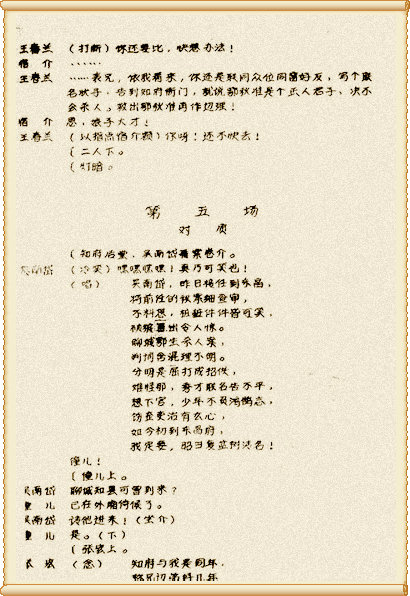 王春兰 （打断）你还要比，快想办法！
宿介 ……
王春兰 ……表兄，依我看来，你还是联同众位同窗好友，写个联
名状子，告到知府衙门，就说鄂秋隼是个正人君子，决不
会杀人。救出鄂秋隼再作处理！
宿介 恩，娘子大才！
王春兰 （以指点宿介额）你呀！还不快去！
〔二人下。
〔灯暗。
第五场
对质
〔知府后堂，吴南岱看案卷介。
吴南岱 （冷笑）嘿嘿嘿嘿！真乃可笑也！
（唱） 吴南岱，昨日接任到东昌，
将前任的状案细查审，
不料想，桩桩件件皆可笑，
出令人惊。
聊城鄂生杀人案，
判词含混理不明。
分明是屈打成招供，
难怪那，秀才联名告不平，
想下官，少年不负鸿鹄志，
饬歪吏治有玄心，
如今初到东昌府，
我定要，昭日复盆树决名！
僮儿！
〔僮儿上。
吴南岱 聊城知县可曾到来？
童儿 已在外厢伺候了。
吴南岱 请他进来！（坐介）
童儿 是。（下）
〔张宏上。
张宏 （念） 知府与我是同年，